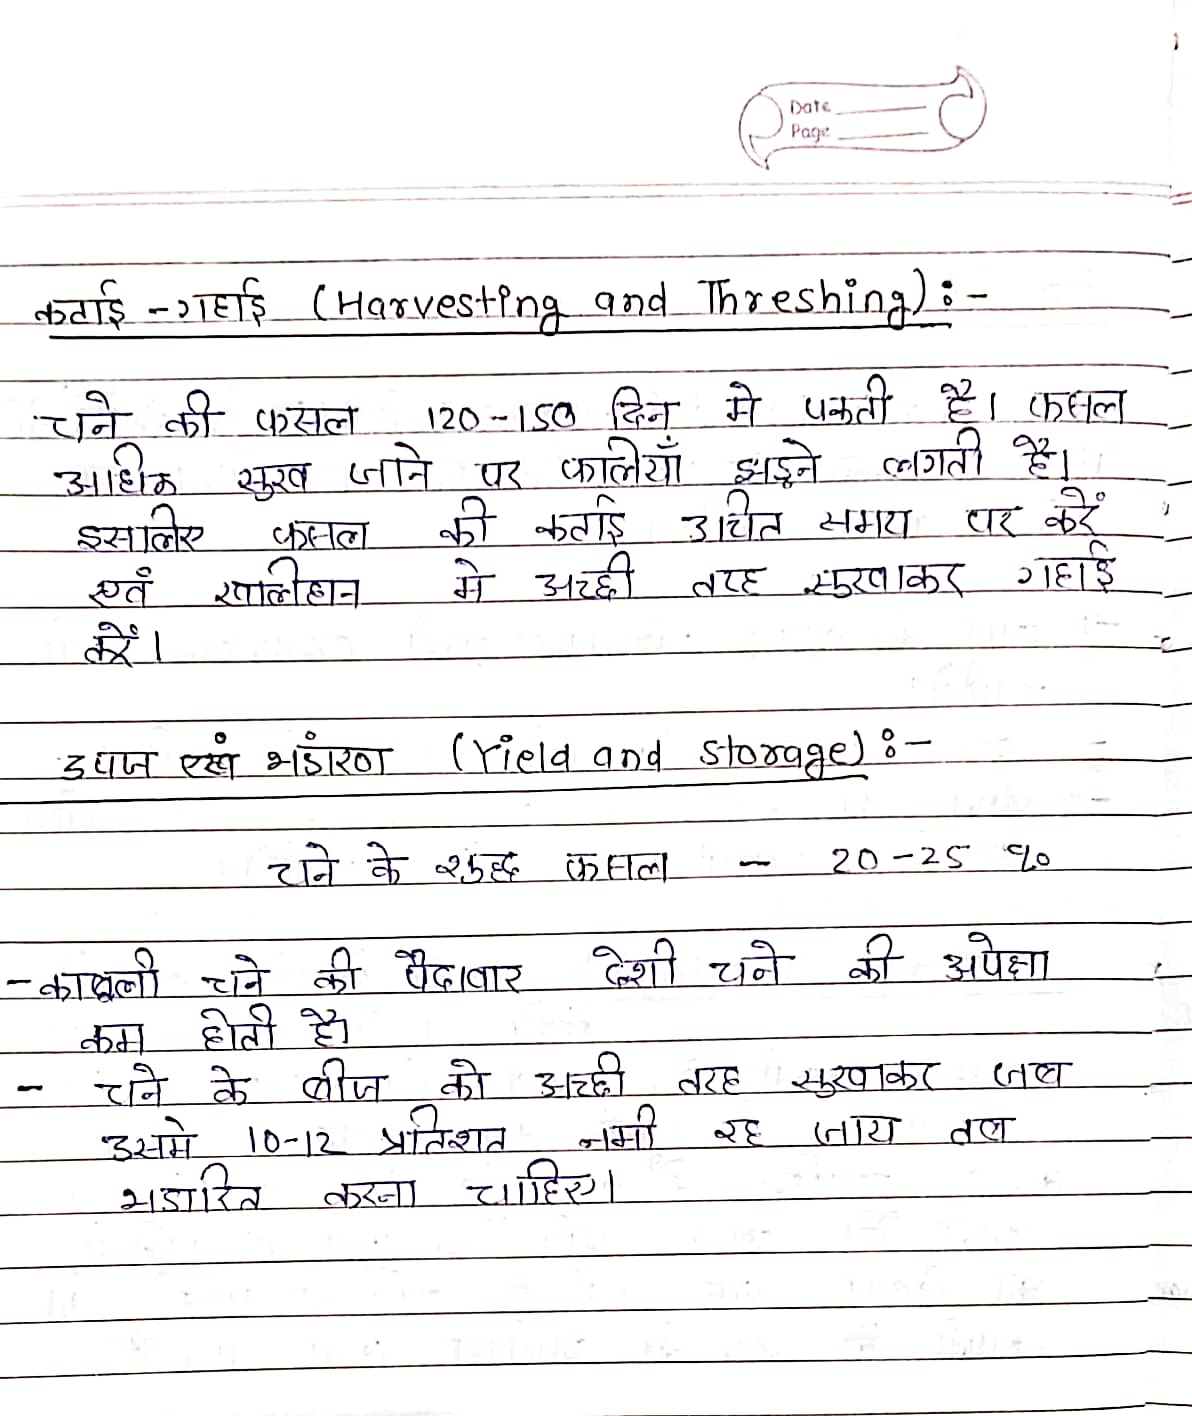 Date
Page
कटाई - गहाई (Harvesting and Threshing) :-
चने की फसल 120-150 दिन मे पकती है। फसल
अधिक सुख जाने पर फलियाँ झड़ने लगती है।
इसलिए फसल की कटाई उचित समय पर करें
एवं खलीहान मे अच्छी तरह सुखाकर गहाई
करें।
उपज एवं भडांरण (Yield and Storage) :-
चने के शुद्ध फसल - 20-25 %
- काबूली चने की पैदावार देशी चने की अपेक्षा
कम होती है।
- चने के बीज को अच्छी तरह सुखाकर जब
उसमे 10-12 प्रतिशत नमी रह जाय तब
भडारित करना चाहिए।